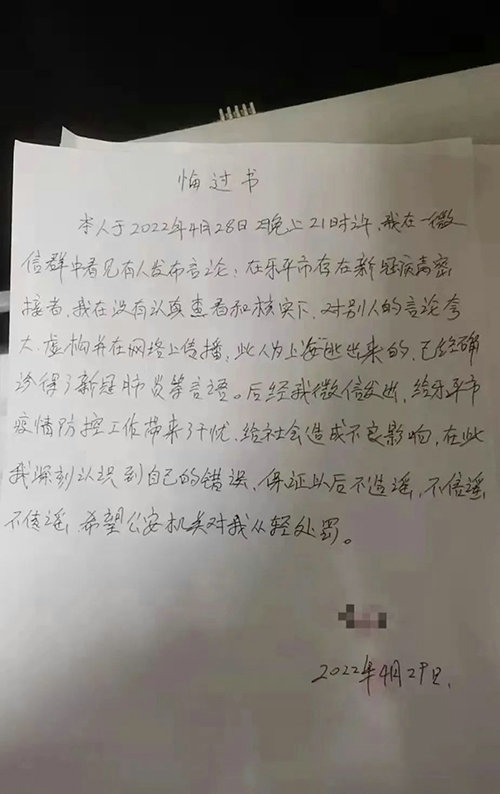 悔过书
本人于2022年4月28日晚上21时许,我在一微
信群中看见有人发布言论:在乐平市存在新冠病毒密
接者,我在没有认真查看和核实下,对别人的言论夸
大、虚构并在网络上传播,此人为上海逃出来的,已经确
诊得了新冠肺炎等言语。后经我微信发出,给乐平市
疫情防控工作带来了干扰,给社会造成不良影响,在此
我深刻认识到自己的错误,保证以后不造谣,不信谣
不传谣,希望公安机关对我从轻处罚。
2022年4月29日.